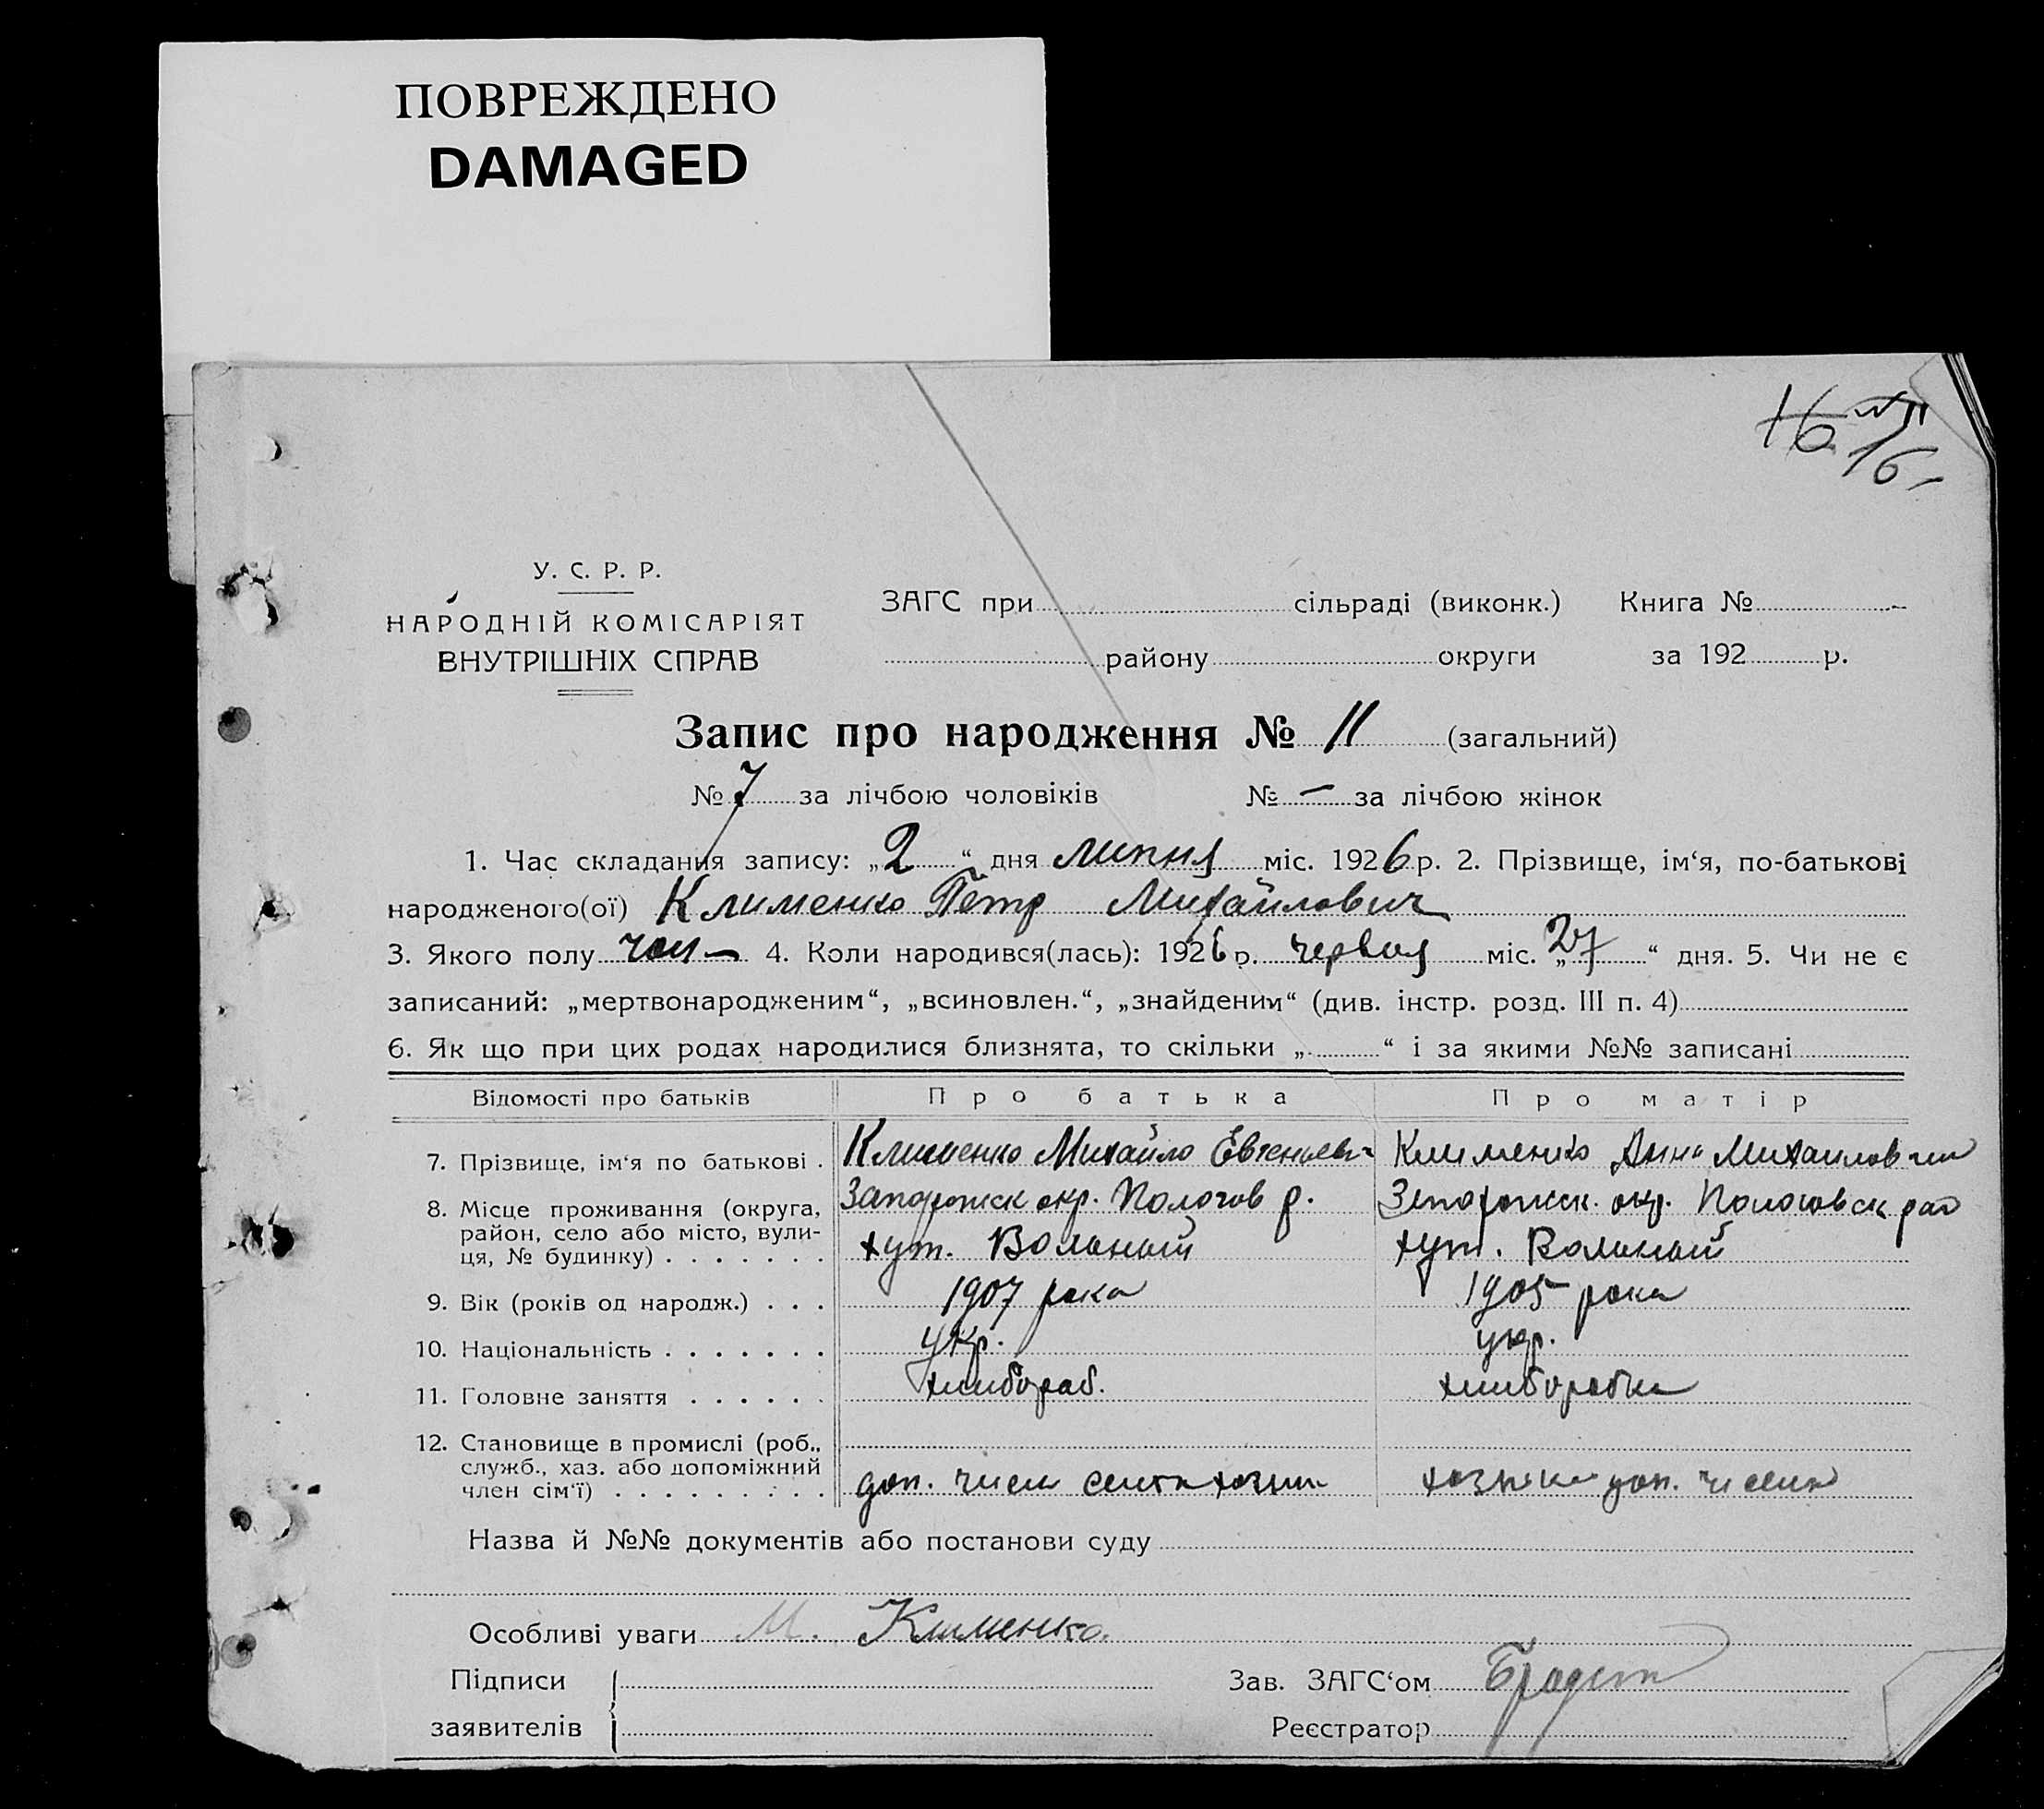 ПОВРЕЖДЕНО
DAMAGED
16
16
У. С. Р. Р.
НАРОДНІЙ КОМІСАРІЯТ
ВНУТРІШНІХ СПРАВ
ЗАГС при сільраді (виконк.) Книга №
району округи за 192 р.
Запис про народження № 11 (загальний)
№ 7 за лічбою чоловіків № — за лічбою жінок
1. Час складання запису: „2“ дня липня міс. 1926 р. 2. Прізвище, ім‘я, по-батькові
народженого(ої) Клименко Петр Михайлович
3. Якого полу чол — 4. Коли народився(лась): 1926 р. червня міс. „27“ дня. 5. Чи не є
записаний: „мертвонародженим“, „всиновлен.“, „знайденим“ (див. інстр. розд. III п. 4)
6. Як що при цих родах народилися близнята, то скільки „ “ і за якими №№ записані
Відомості про батьків Про батька Про матір
7. Прізвище, ім‘я по батькові . Клименко Михайло Клименко Анна
8. Місце проживання (округа, Запорожск окр. Пологов р. Запорожск. окр. Пологовск рай
район, село або місто, вули- хут. Вольный хут. Вольный
ця, № будинку) . . . . . . .
9. Вік (років од народж.) . . . 1907 рока 1905 рока
10. Національність . . . . . . . укр. укр.
11. Головне заняття . . . . . . хлибораб. хлиборобка
12. Становище в промислі (роб.,
служб., хаз. або допоміжний
член сім‘ї) . . . . . . . . . доп. доп.
Назва й №№ документів або постанови суду
Особливі уваги М. Клименко.
Підписи Зав. ЗАГС‘ом
заявителів Реєстратор